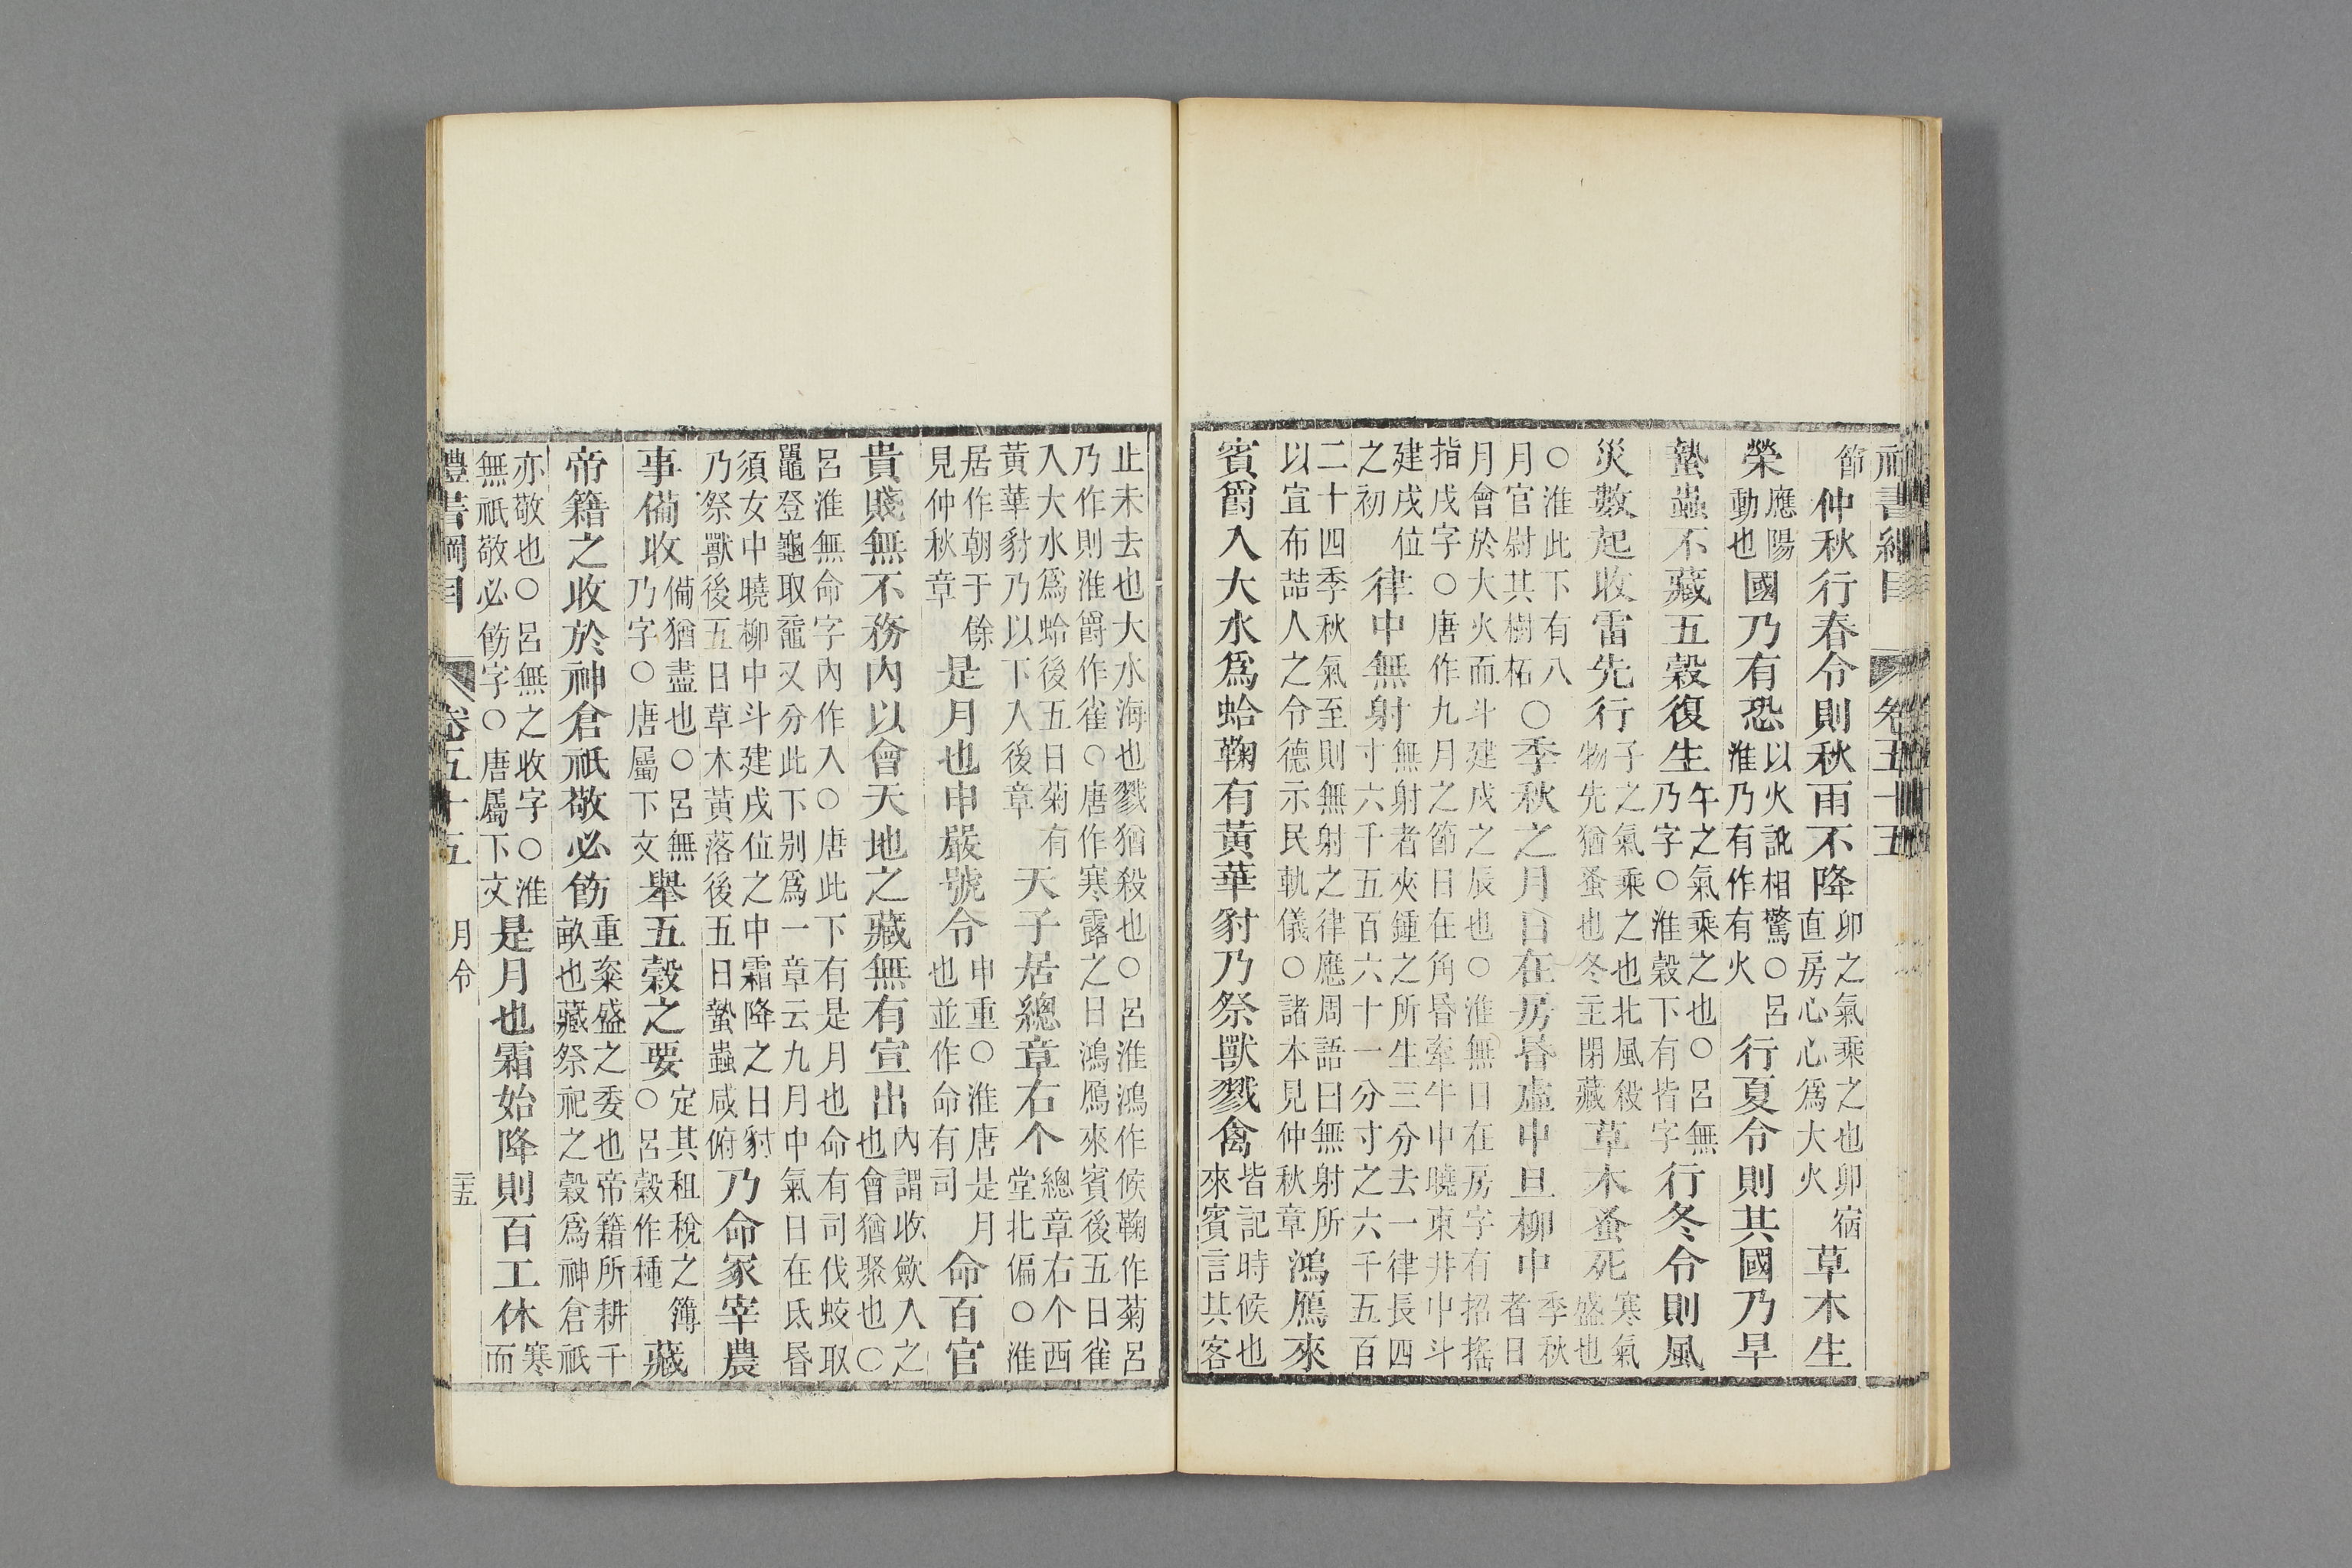 禮書綱目 卷五十五
節仲秋行春令則秋雨不降卯之氣乘之也卯宿直房心心爲大火草木生
榮應陽動也國乃有恐以火訛相驚○呂淮乃有作有火行夏令則其國乃旱
蟄蟲不藏五穀復生午之氣乘之也○呂無乃字○淮穀下有皆字行冬令則風
災數起收雷先行子之氣乘之也北風殺物先猶蚤也冬主閉藏草木蚤死寒氣盛也
○淮此下有八月官尉其樹柘○季秋之月日在房昏虛中旦柳中季秋者日
月會於大火而斗建戌之辰也○淮無日在房字有招搖指戌字○唐作九月之節日在角昏牽牛中曉東井中斗
建戌位之初律中無射無射者夾鍾之所生三分去一律長四寸六千五百六十一分寸之六千五百
二十四季秋氣至則無射之律應周語曰無射所以宣布喆人之令德示民軌儀○諸本見仲秋章鴻鴈來
賓爵入大水爲蛤鞠有黃華豺乃祭獸戮禽皆記時候也來賓言其客
止未去也大水海也戮猶殺也○呂淮鴻作候鞠作菊呂乃作則淮爵作雀○唐作寒露之日鴻鴈來賓後五日雀
入大水爲蛤後五日菊有黃華豺乃以下入後章天子居總章右个總章右个西堂北偏○淮
居作朝于餘見仲秋章是月也申嚴號令申重○淮唐是月也並作命有司命百官
貴賤無不務內以會天地之藏無有宣出內謂收斂入之也會猶聚也○
呂淮無命字內作入○唐此下有是月也命有司伐蛟取鼉登龜取黿又分此下别爲一章云九月中氣日在氐昏
須女中曉柳中斗建戌位之中霜降之日豺乃祭獸後五日草木黃落後五日蟄蟲咸俯乃命冢宰農
事備收備猶盡也○呂無乃字○唐屬下文舉五穀之要定其租稅之簿○呂穀作種藏
帝籍之收於神倉祇敬必飭重粢盛之委也帝籍所耕千畝也藏祭祀之穀爲神倉祇
亦敬也○呂無之收字○淮無祇敬必飭字○唐屬下文是月也霜始降則百工休寒而
禮書綱目 卷五十五 月令 三五